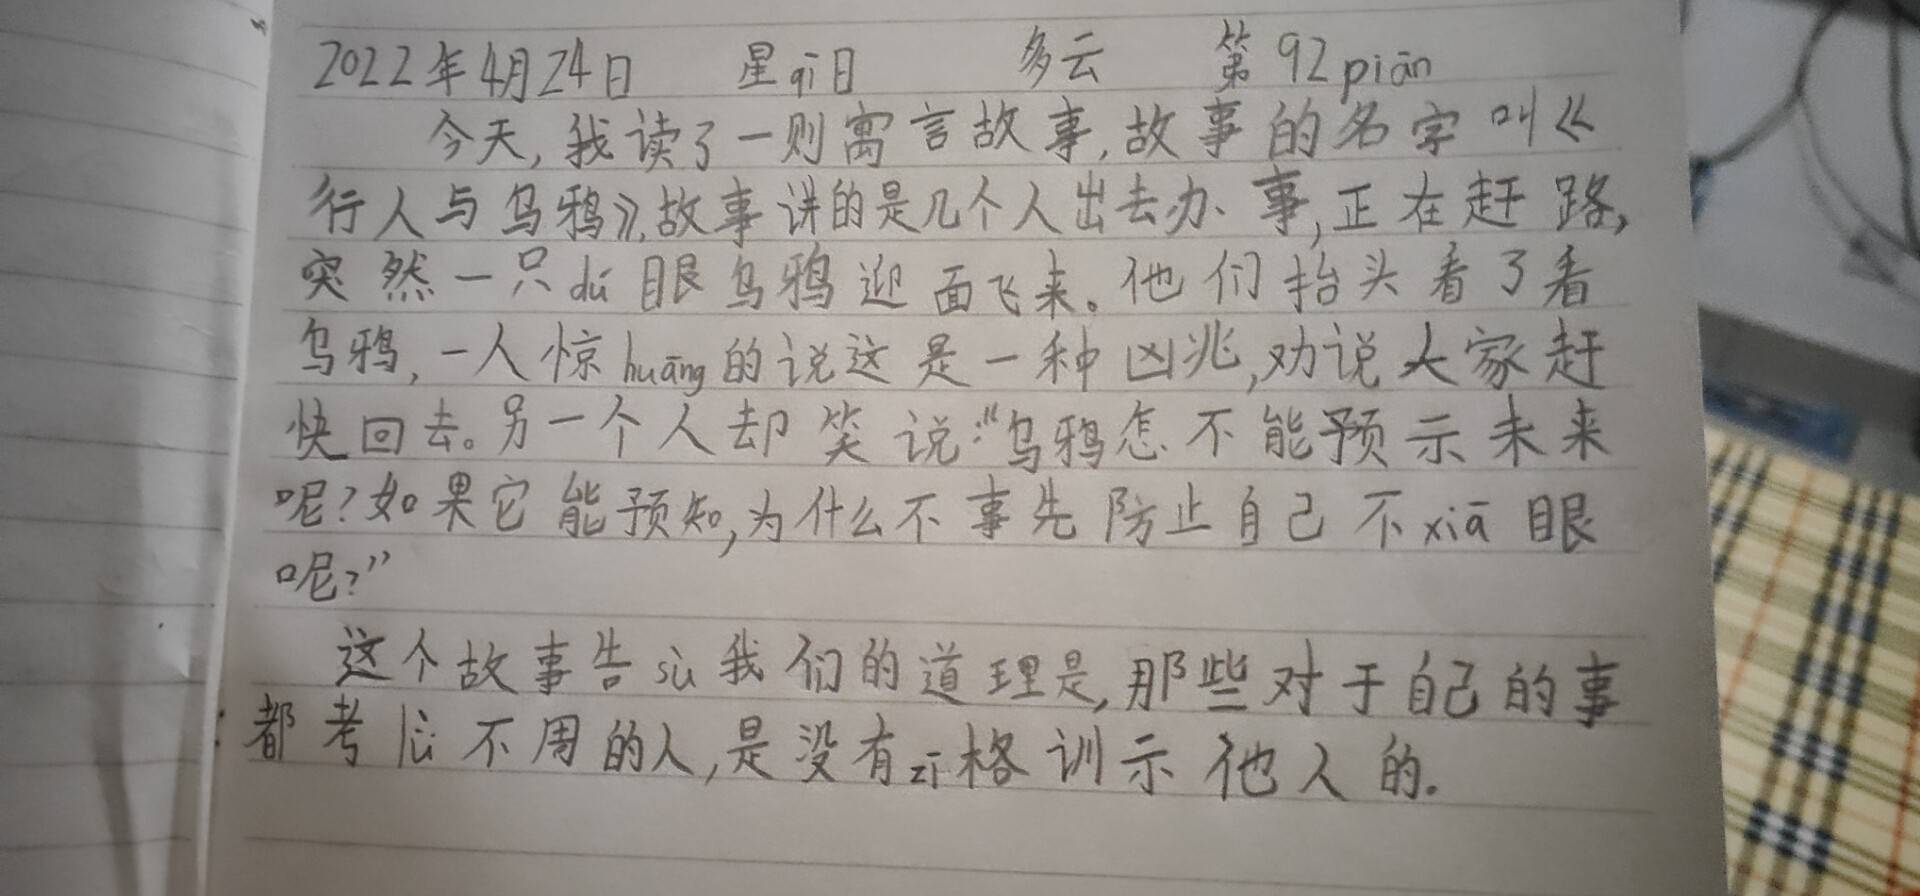 2022年4月24日 星qī日 多云 第92piān
今天,我读了一则寓言故事,故事的名字叫《
行人与乌鸦》,故事讲的是几个人出去办事,正在赶路,
突然一只dú眼乌鸦迎面飞来。他们抬头看了看
乌鸦,一人惊huāng的说这是一种凶兆,劝说大家赶
快回去。另一个人却笑说:“乌鸦怎不能预示未来
呢?如果它能预知,为什么不事先防止自己不xiā眼
呢?”
这个故事告sù我们的道理是,那些对于自己的事
都考lǜ不周的人,是没有zī格训示他人的.